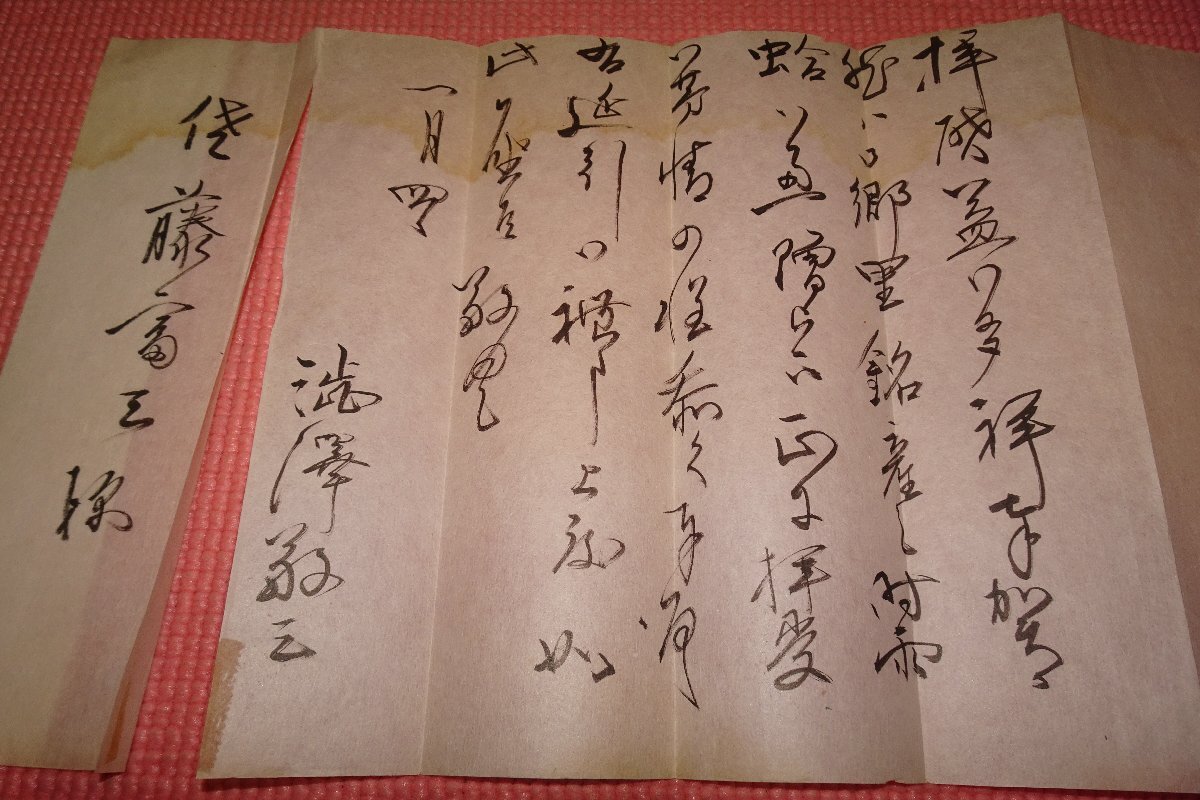 拝啓益御多祥奉賀候
然ば御郷里銘産之時雨
蛤御恵贈被下正に拝受
御芳情の程忝く奉存候
右延引御礼申上度如
此御座候 敬具
一月四日
澁澤敬三
佐藤富三様